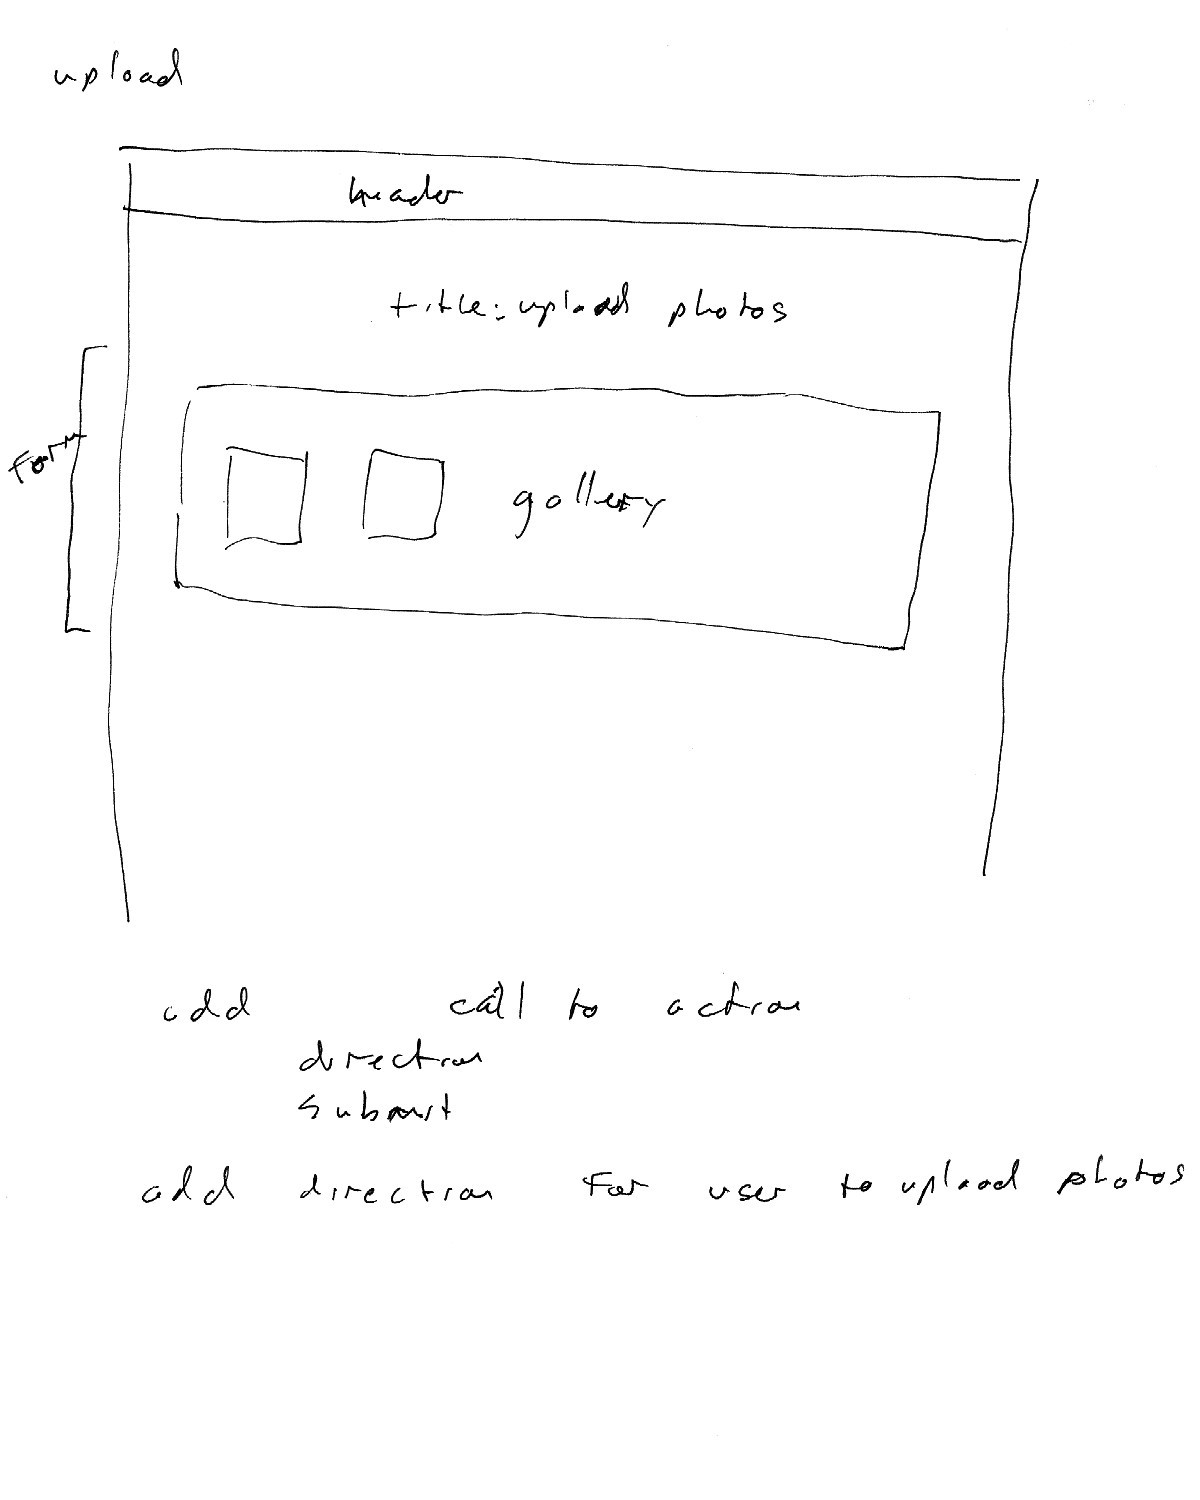 upload
header
title: upload photos
form
gallery
add call to action
direction
submit
add direction for user to upload photos